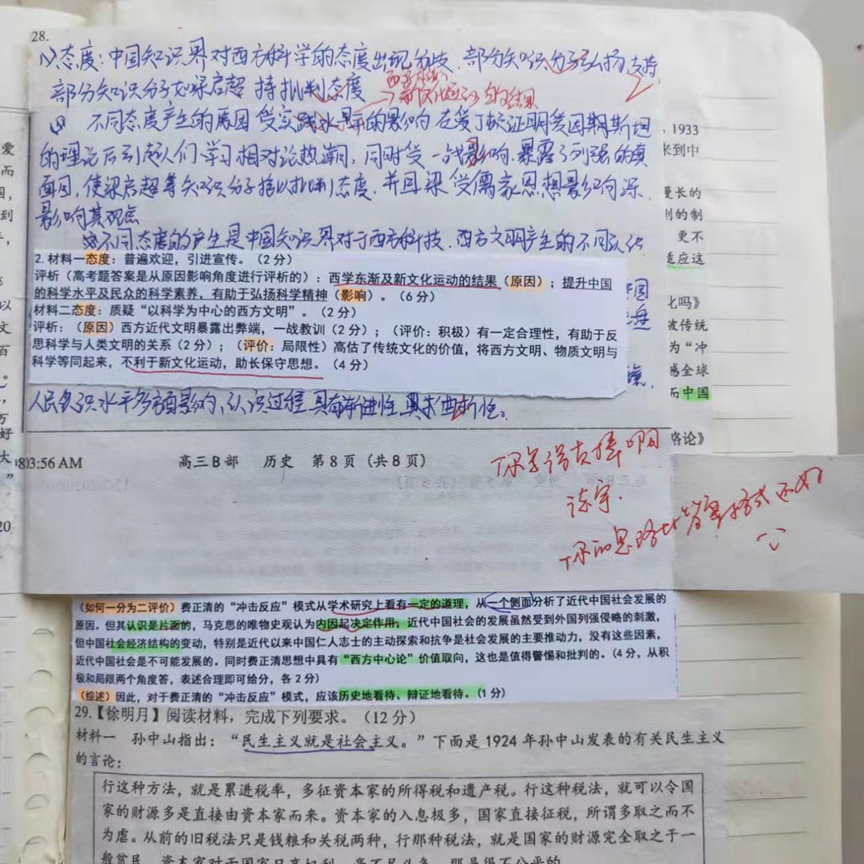 28.
态度：中国知识界对西方科学的态度出现分歧．部分知识分子弘扬支持
部分知识分子如梁启超 持批判态度
不同态度产生的原因 受实践水平的影响 在爱丁顿证明爱因斯坦
的理论后引起人们学习相对论热潮，同时受一战影响，暴露了列强的真
面目，使梁启超等知识分子持以批判态度．并且梁受儒家思想影响深．
影响其观点
不同态度的产生是中国知识界对于西方科技．西方文明产生的不同认识
2. 材料一态度：普遍欢迎，引进宣传。（2 分）
评析（高考题答案是从原因影响角度进行评析的）：西学东渐及新文化运动的结果（原因）；提升中国
的科学水平及民众的科学素养，有助于弘扬科学精神（影响）。（6 分）
材料二态度：质疑“以科学为中心的西方文明”。（2 分）
评析：（原因）西方近代文明暴露出弊端，一战教训（2 分）；（评价：积极）有一定合理性，有助于反
思科学与人类文明的关系（2 分）；（评价：局限性）高估了传统文化的价值，将西方文明、物质文明与
科学等同起来，不利于新文化运动，助长保守思想。（4 分）
人民认识水平多方面影响，认识过程具有渐进性
3:56 AM 高三B部 历史 第 8 页（共 8 页）
你写得真棒啊
你的思路比答案方式还好
（如何一分为二评价）费正清的“冲击反应”模式从学术研究上看有一定的道理，从一个侧面分析了近代中国社会发展的
原因。但其认识是片面的，马克思的唯物史观认为内因起决定作用；近代中国社会的发展虽然受到外国列强侵略的刺激，
但中国社会经济结构的变动，特别是近代以来中国仁人志士的主动探索和抗争是社会发展的主要推动力，没有这些因素，
近代中国社会是不可能发展的。同时费正清思想中具有“西方中心论”价值取向，这也是值得警惕和批判的。（4 分，从积
极和局限两个角度答，表述合理即可给分，各 2 分）
（综述）因此，对于费正清的“冲击反应”模式，应该历史地看待、辩证地看待。（1 分）
29.【徐明月】阅读材料，完成下列要求。（12 分）
材料一 孙中山指出：“民生主义就是社会主义。”下面是 1924 年孙中山发表的有关民生主义
的言论：
行这种方法，就是累进税率，多征资本家的所得税和遗产税。行这种税法，就可以令国
家的财源多是直接由资本家而来。资本家的入息极多，国家直接征税，所谓多取之而不
为虐。从前的旧税法只是钱粮和关税两种，行那种税法，就是国家的财源完全取之于一
般贫民，资本家对于国家只享权利，毫不尽义务，那是很不公平的。
1933
来到中
漫长的
列的制
更不
适应这
化吗》
被传统
为“冲
感全球
而中国
略论》